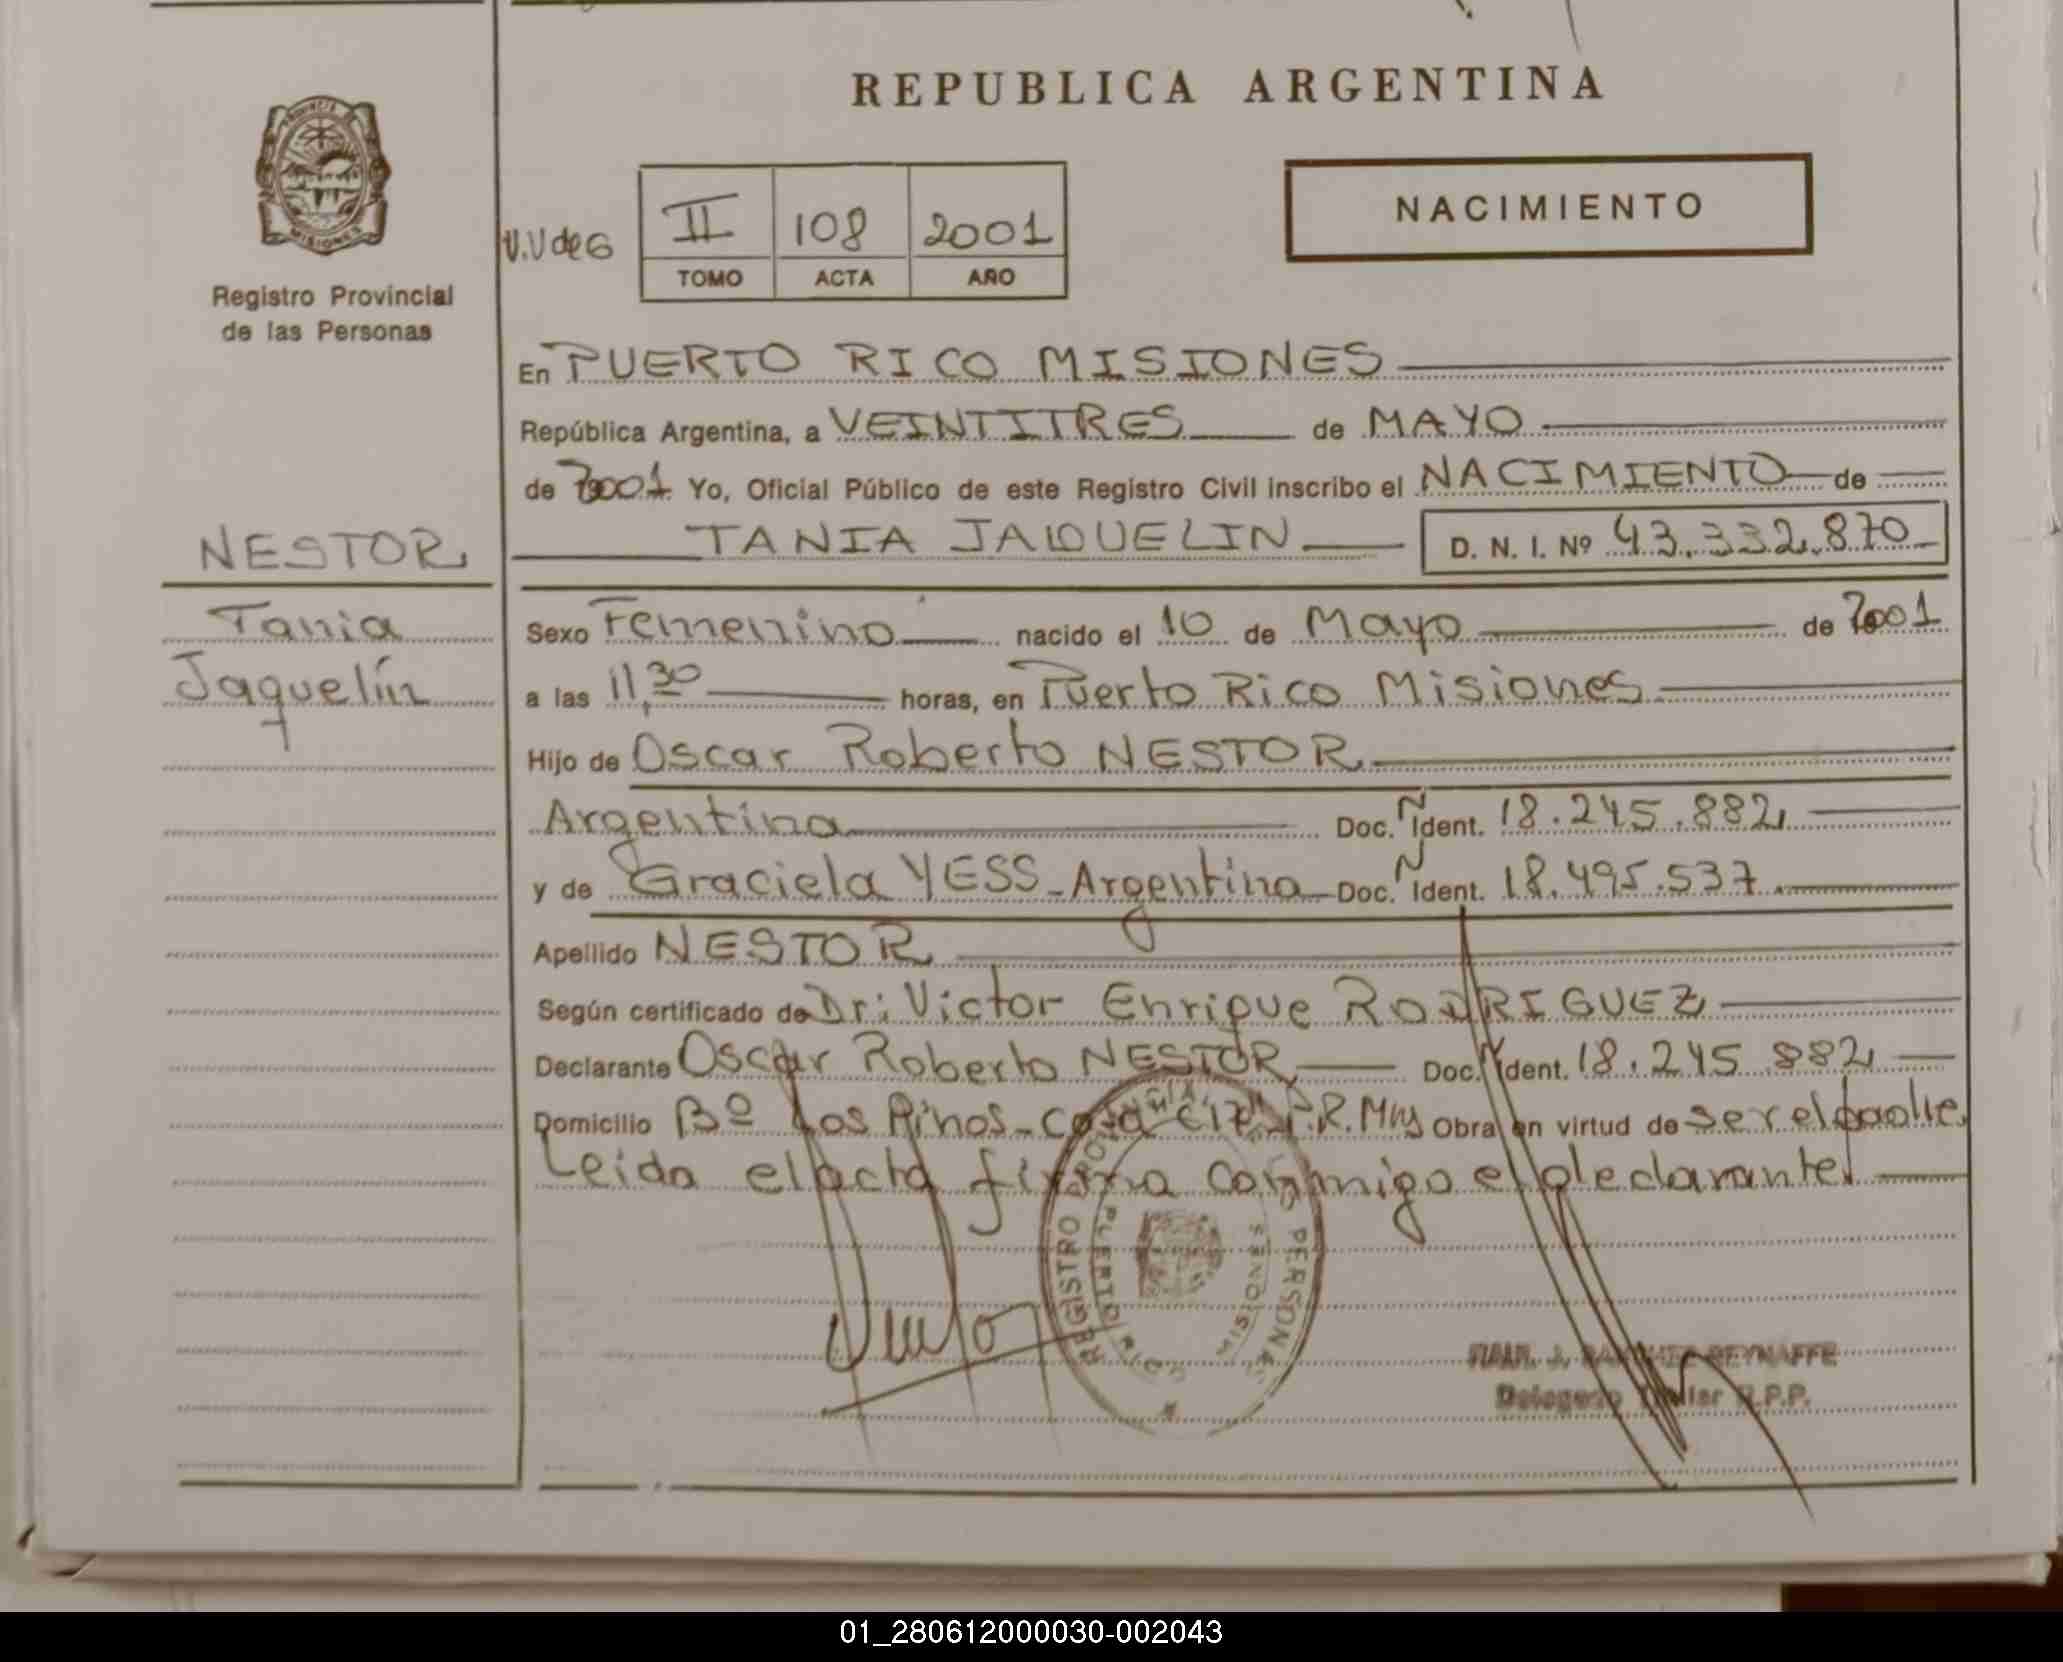 REPUBLICA ARGENTINA
PROVINCIA
MISIONES
Registro Provincial
de las Personas
V.V de G
II 108 2001
TOMO ACTA AÑO
NACIMIENTO
En PUERTO RICO MISIONES
República Argentina, a VEINTITRES de MAYO
de 2001 Yo, Oficial Público de este Registro Civil inscribo el NACIMIENTO de
TANIA JAQUELIN D. N. I. Nº 43.332.870
NESTOR
Tania
Jaquelín
Sexo Femenino nacido el 10 de Mayo de 2001
a las 11,30 horas, en Puerto Rico Misiones
Hijo de Oscar Roberto NESTOR
Argentina Doc. Ñ Ident. 18.245.882
y de Graciela YESS - Argentina Doc. Ñ Ident. 18.495.537
Apellido NESTOR
Según certificado de Dr: Victor Enrique RODRIGUEZ
Declarante Oscar Roberto NESTOR Doc. Ñ Ident. 18.245.882
Domicilio Bº Los Pinos - casa P.R. Mns Obra en virtud de ser el padre
Leida el acta firma conmigo el declarante
REGISTRO PROVINCIAL DE LAS PERSONAS
PUERTO RICO
MISIONES
REYNAFFE
Delegado Titular R.P.P.
01_280612000030-002043